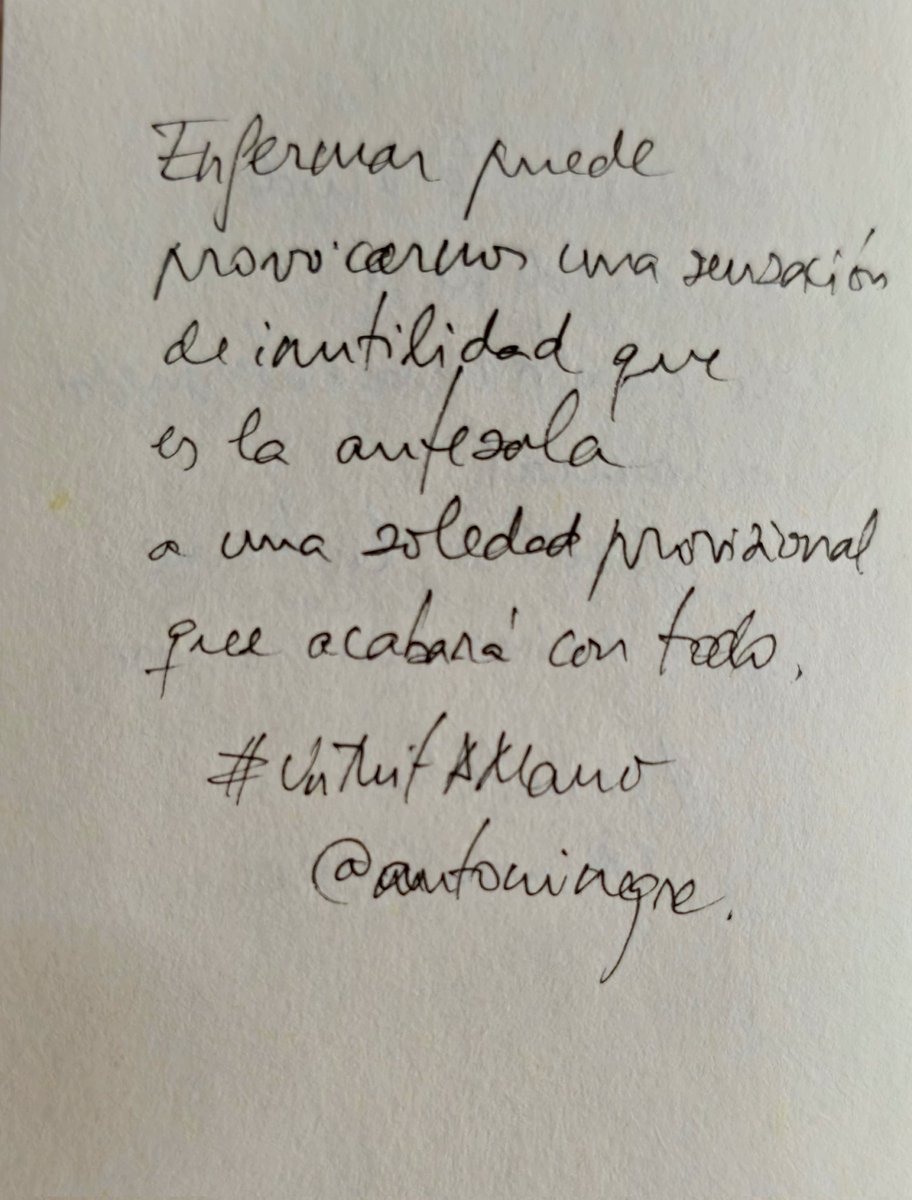 Enfermar puede
provocarnos una sensación
de inutilidad que
es la antesala
a una soledad provisional
que acabará con todo.
#UnTuitAMano
@antoninegre.